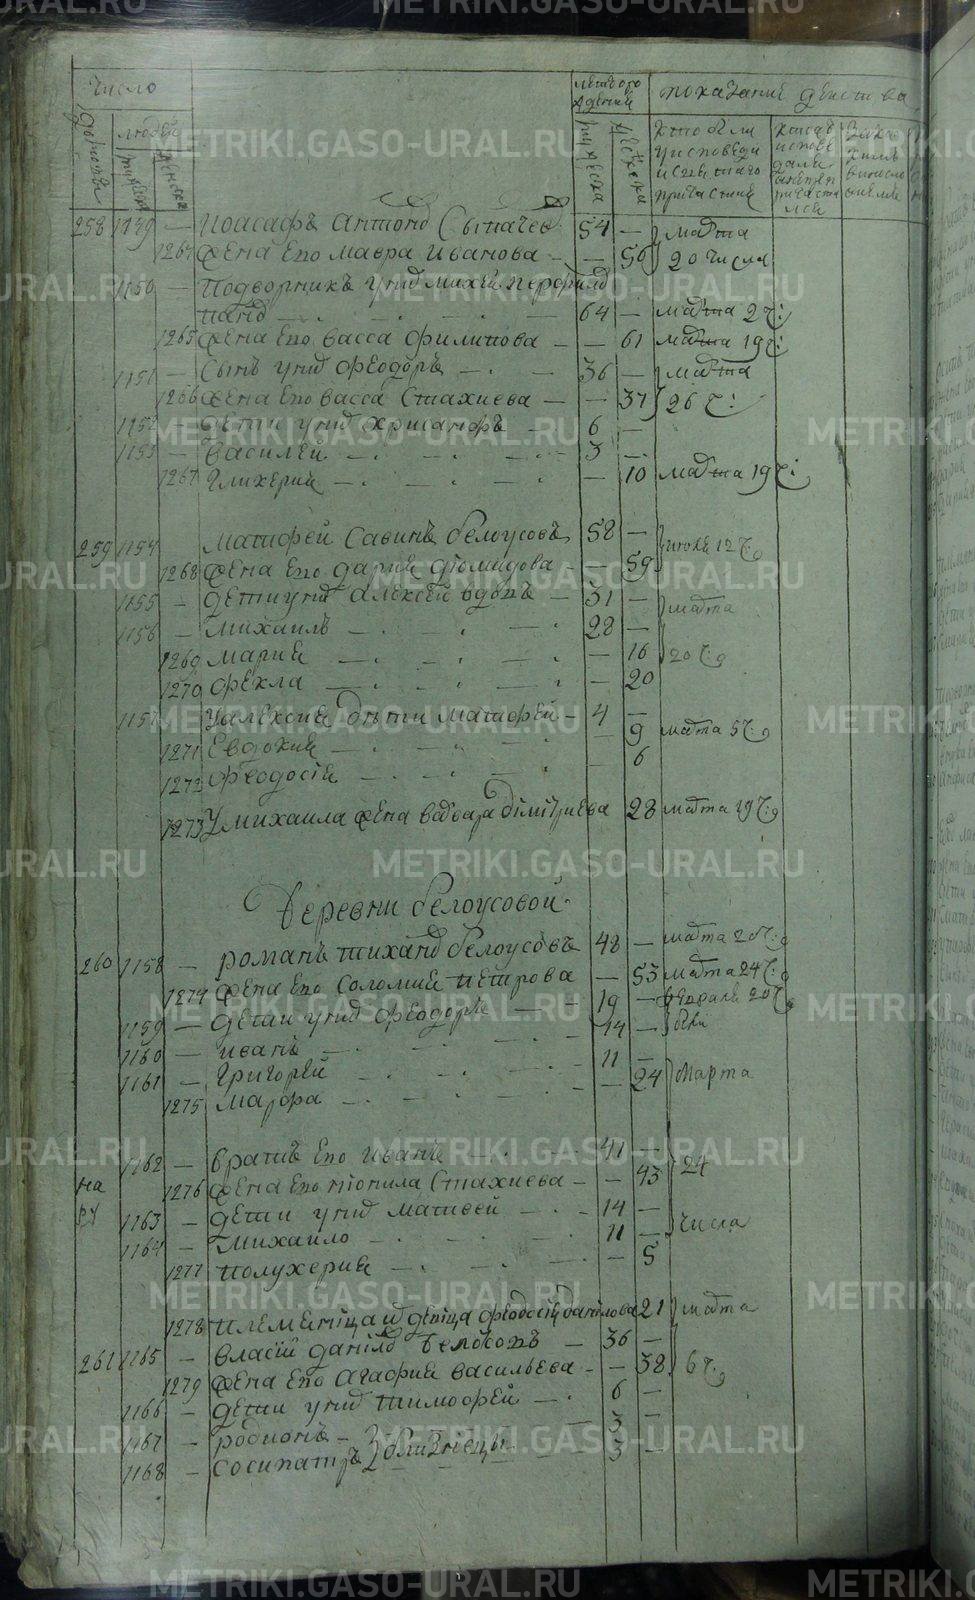 METRIKI.GASO-URAL.RU
число
дворовъ
людей
мужеска
женска
лѣтъ отъ рождения
мужеска
женска
показание действа
кто были у исповеди и святаго причастия
258 1149 — Иоасафъ Антонов Сыпачев 54 — марта
1264 жена его мавра Иванова — — 56 20 числа
1150 — подворникъ у них михей перфил
иановъ — 64 — марта 2 ч:
1265 жена его васса филипова — — 61 марта 19 ч:
1151 — сынъ у них феодоръ — 36 — марта
1266 жена его васса Стахиева — — 37 26 ч:
1152 — дети у них хрисанфъ — 6 —
1153 — василей — 3 —
1267 гликерия — — 10 марта 19 ч:
259 1154 матфей Савинъ белоусовъ 58 — 12 ч:
1268 жена его дария диомидова — — 59
1155 — дети у них алексей вдовъ — 31 — марта
1156 — михаилъ — 28 —
1269 мария — — 16 20 ч:
1270 фекла — — 20
1157 У алексия дѣти матфей — 4 —
1271 евдокия — — 9 марта 5 ч:
1272 феодосия — — 6
1273 У михаила жена варвара димитриева 28 марта 19 ч:
Деревни белоусовой
260 1158 — романъ тиханов белоусовъ 48 — марта 20 ч:
1274 жена его соломия петрова — 53 марта 24 ч:
1159 — дети у них феодоръ — 19 — февраля 20 ч:
1160 — иванъ — 14 —
1161 — григорей — 11 —
1275 марфа — — 24 марта
1162 — братъ его иванъ — 41 — 24
1276 жена его неонила Стахиева — — 43
1163 — дети у них матвей — 14 — числа
1164 — михайло — 11 —
1277 полухерия — — 5
1278 племяница их девица феодосия данилова 21 марта
261 1165 — власий данилов белоусовъ — 36 —
1279 жена его агафия васильева — — 38 6 ч:
1166 — дети у них тимофей — 6 —
1167 — родионъ — 3 —
1168 — сосипатръ близнецы — 3 —